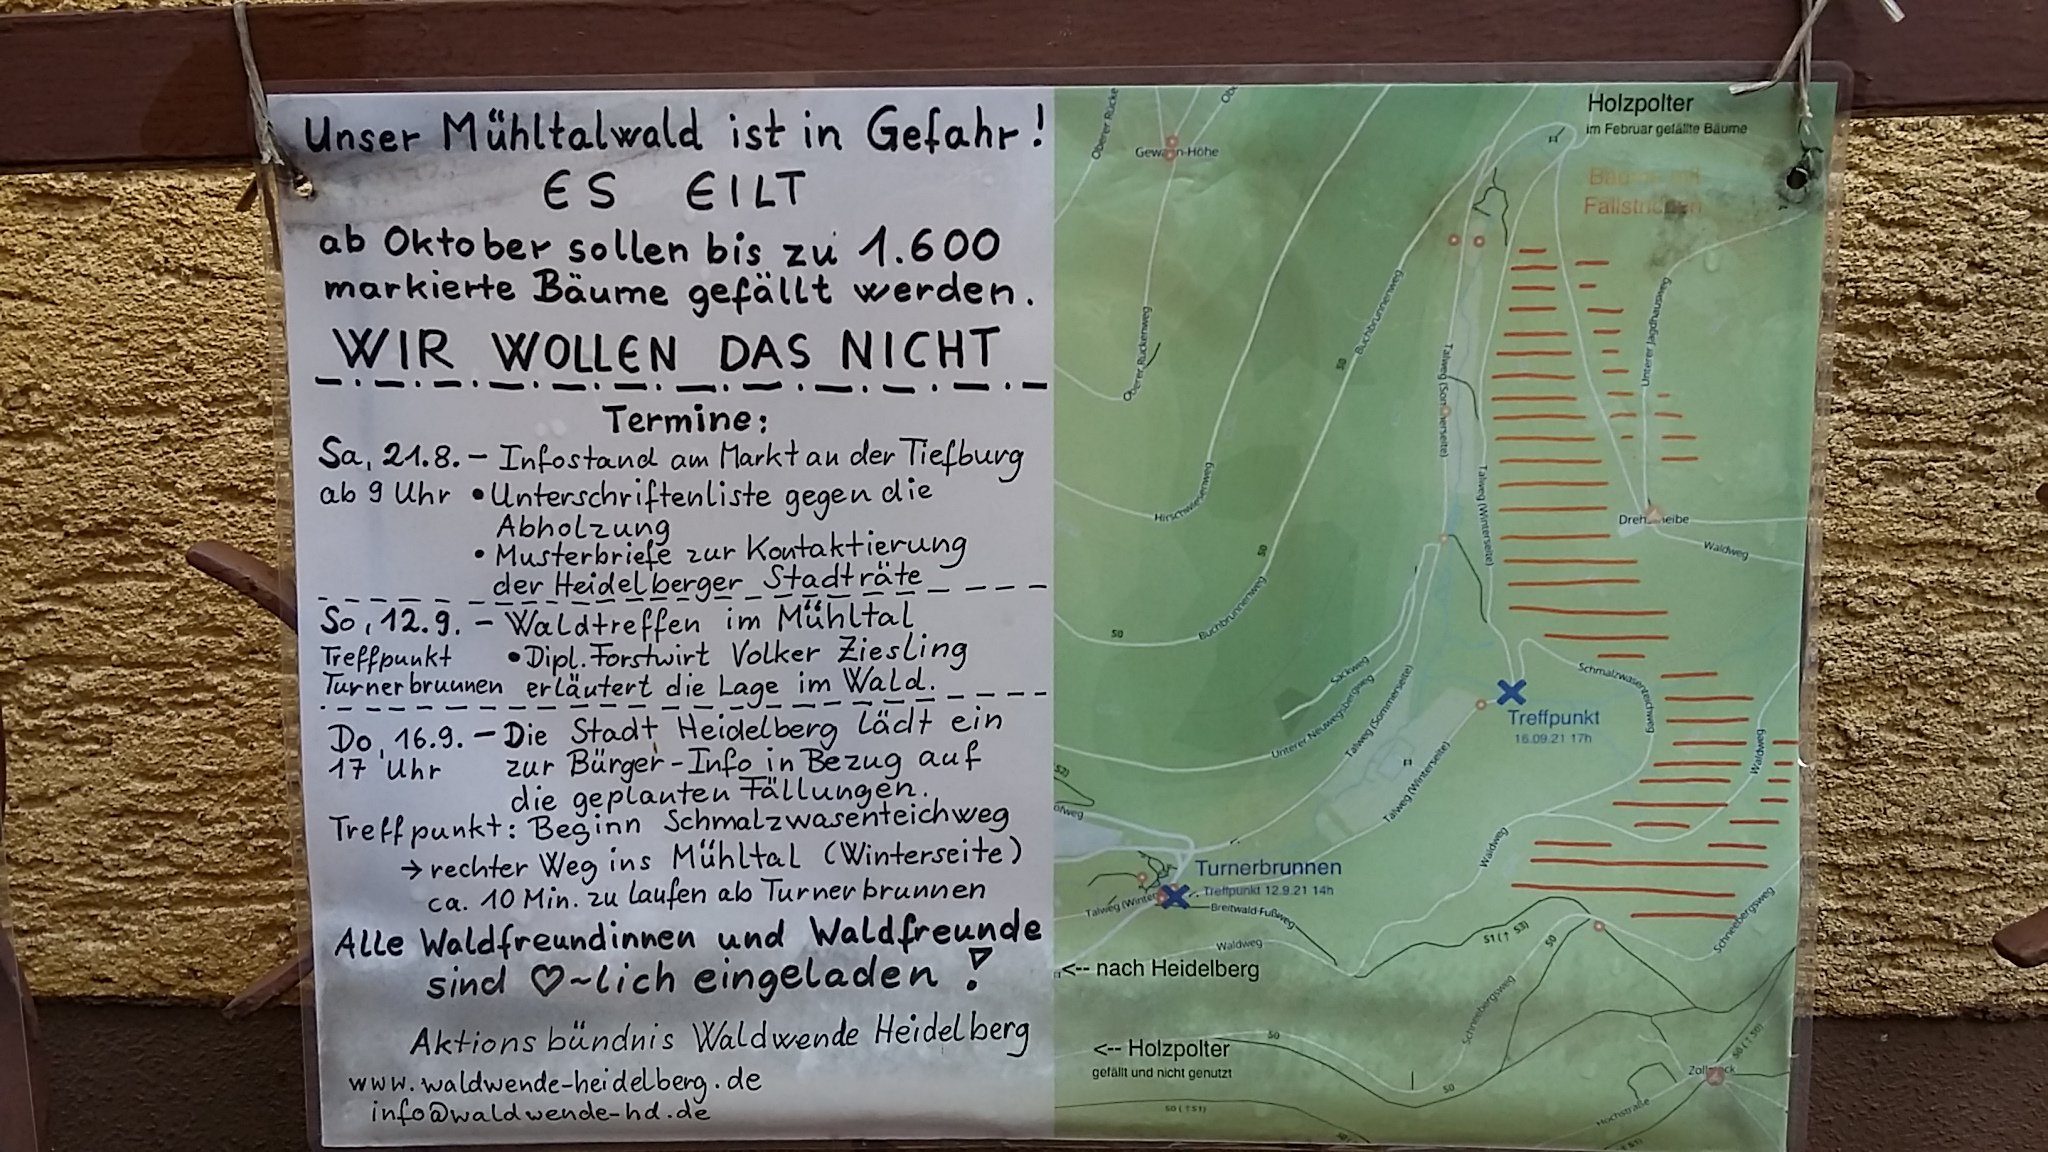 Unser Mühltalwald ist in Gefahr!
ES EILT
ab Oktober sollen bis zu 1.600
markierte Bäume gefällt werden.
WIR WOLLEN DAS NICHT
Termine:
Sa, 21.8. – Infostand am Markt an der Tiefburg
ab 9 Uhr • Unterschriftenliste gegen die
Abholzung
• Musterbriefe zur Kontaktierung
der Heidelberger Stadträte
So, 12.9. – Waldtreffen im Mühltal
Treffpunkt • Dipl. Forstwirt Volker Ziesling
Turnerbrunnen erläutert die Lage im Wald.
Do, 16.9. – Die Stadt Heidelberg lädt ein
17 Uhr zur Bürger-Info in Bezug auf
die geplanten Fällungen.
Treffpunkt: Beginn Schmalzwasenteichweg
→ rechter Weg ins Mühltal (Winterseite)
ca. 10 Min. zu laufen ab Turnerbrunnen
Alle Waldfreundinnen und Waldfreunde
sind ♡~lich eingeladen!
Aktionsbündnis Waldwende Heidelberg
www.waldwende-heidelberg.de
info@waldwende-hd.de
Holzpolter
im Februar gefällte Bäume
Oberer Rücke
Gewann-Höhe
Unterer Jagdhausweg
Buchbrunnenweg
S0
Oberer Rückenweg
Talweg (Sommerseite)
Talweg (Winterseite)
Hirschwiesenweg
Drehscheibe
Waldweg
S0
Buchbrunnenweg
S0
Sackweg
Schmalzwasenteichweg
Unterer Neuwegsbergweg
Talweg (Sommerseite)
Treffpunkt
16.09.21 17h
Waldweg
Talweg (Winterseite)
Waldweg
Turnerbrunnen
Treffpunkt 12.9.21 14h
Talweg (Winter
Breitwald-Fußweg
Waldweg
S1 (↑ S3)
S0
Schneebergsweg
<-- nach Heidelberg
Schneebergsweg
S0
<-- Holzpolter
gefällt und nicht genutzt
S0
S0 (↑S0)
Zollstock
Hochstraße
S0 (↑S1)